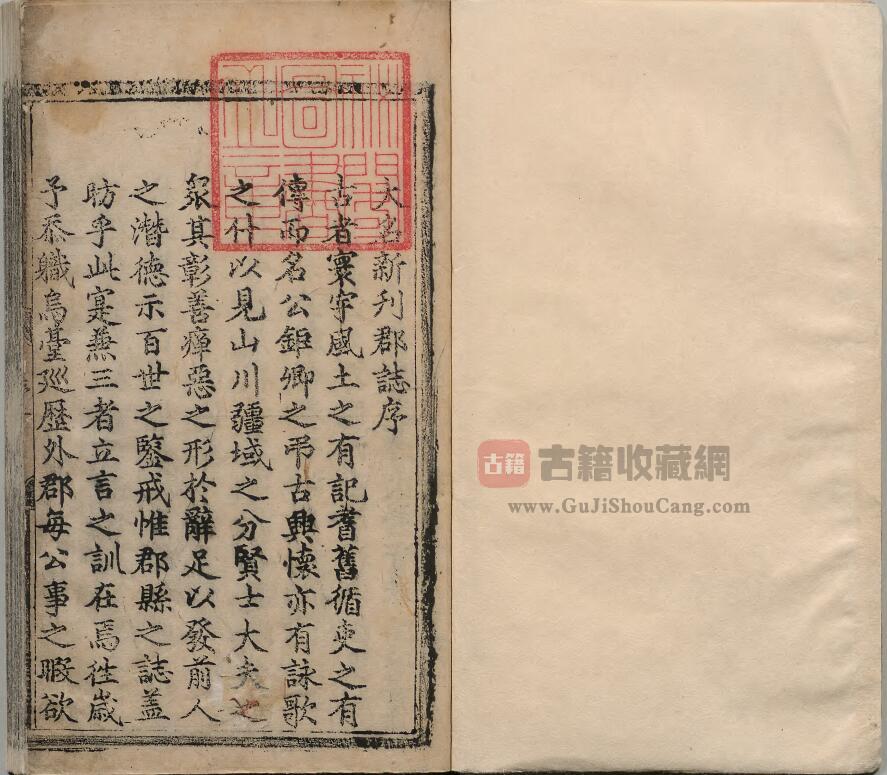 大名新刋郡誌序
古者寰宇風土之有記耆舊循吏之有
傳而名公鉅卿之弔古興懷亦有詠歌
之什以見山川疆域之分賢士大夫之
衆其彰善癉惡之形於辭足以發前人
之潛德示百世之鑒戒惟郡縣之誌盖
昉乎此寔兼三者立言之訓在焉徃歲
予忝職烏臺廵歷外郡每公事之暇欲
古籍
古籍收藏網
www.GuJiShouCang.com